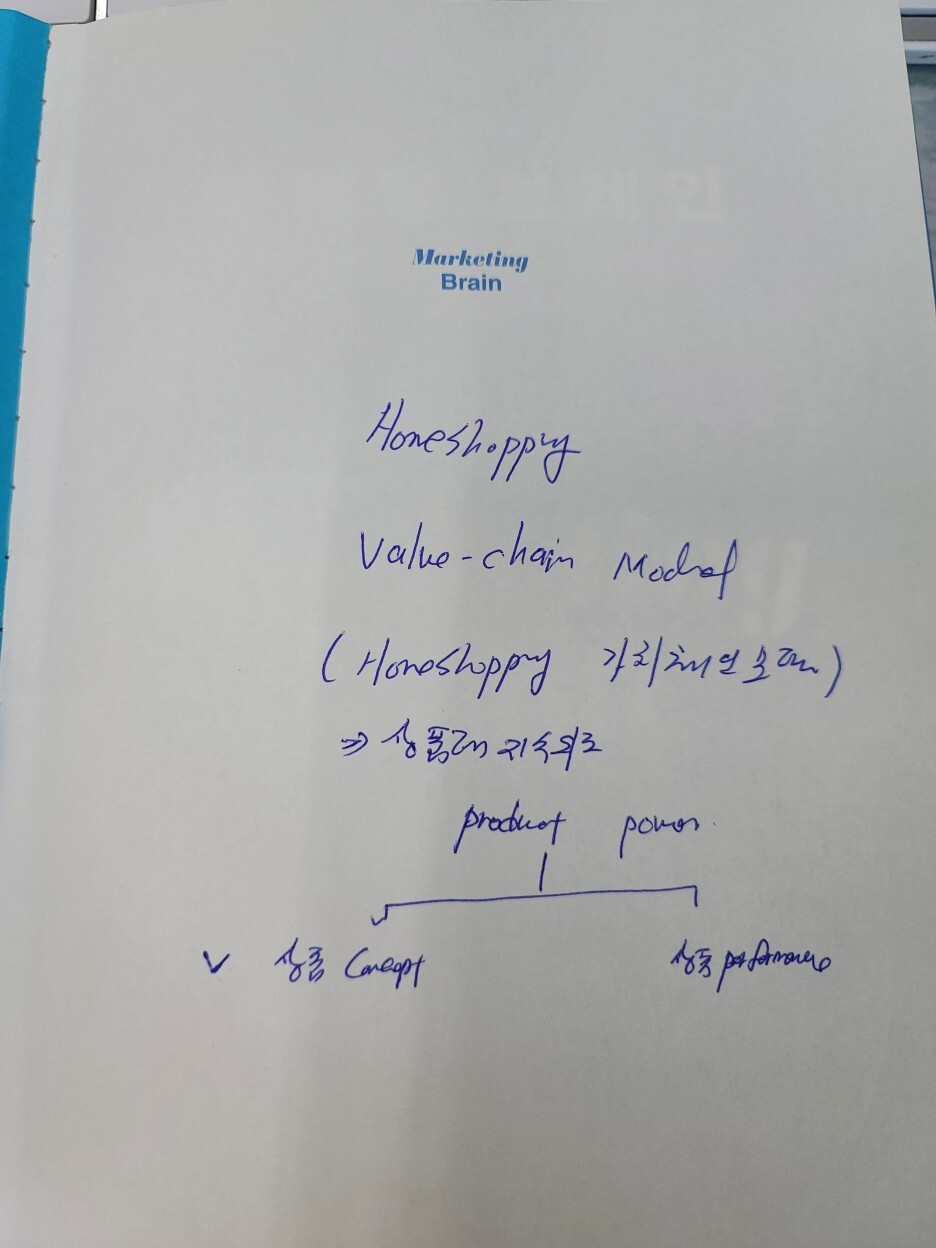 Marketing
Brain
Homeshopping
Value-chain Model
(Homeshopping 가치체인모델)
⇒ 상품
product power
✓ 상품 Concept 상품 performance